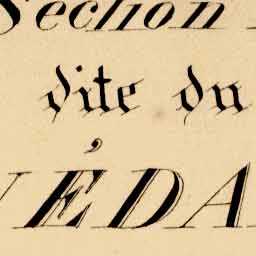 Section
dite du
VÉDA